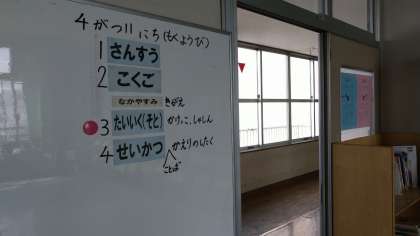 4がつ11にち(もくようび)
1 さんすう
2 こくご
なかやすみ きがえ
3 たいいく(そと) かけっこ、しゃしん
4 せいかつ かえりのしたく
ことば